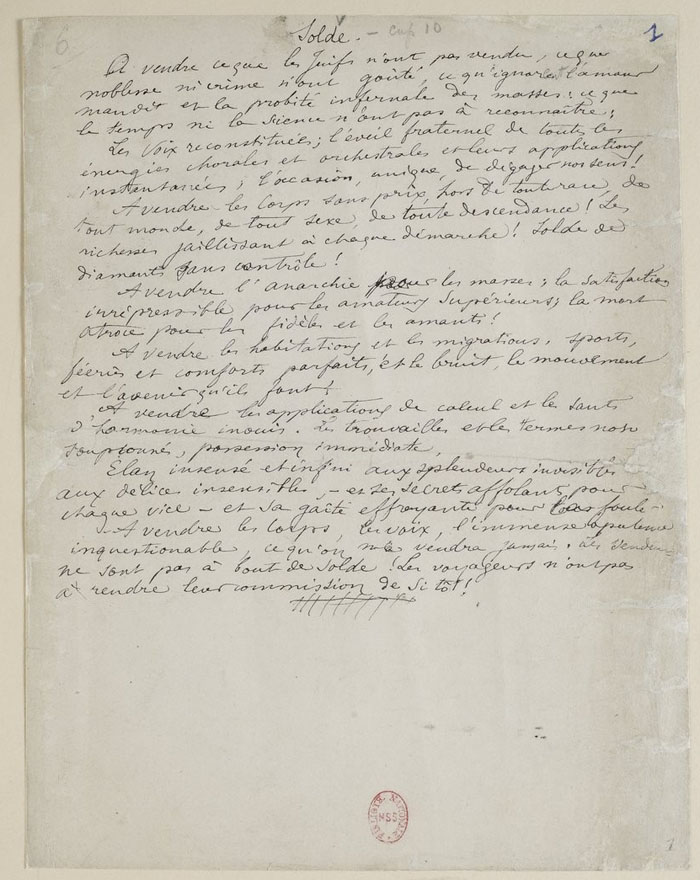 6
Solde. - cap 10
1
A vendre ce que les Juifs n'ont pas vendu, ce que
noblesse ni crime n'ont goûté, ce qu'ignorent l'amour
maudit et la probité infernale des masses : ce que
le temps ni la science n'ont pas à reconnaître ;
Les Voix reconstituées ; l'éveil fraternel de toutes les
énergies chorales et orchestrales et leurs applications
instantanées ; l'occasion, unique, de dégager nos sens !
A vendre les Corps sans prix, hors de toute race, de
tout monde, de tout sexe, de toute descendance ! Les
richesses jaillissant à chaque démarche ! Solde de
diamants sans contrôle !
A vendre l'anarchie pour les masses ; la satisfaction
irrépressible pour les amateurs supérieurs ; la mort
atroce pour les fidèles et les amants !
A vendre les habitations et les migrations, sports,
féeries et comforts parfaits, et le bruit, le mouvement
et l'avenir qu'ils font !
A vendre les applications de calcul et les sauts
d'harmonie inouïs. Les trouvailles et les termes non
soupçonnés, possession immédiate,
Elan insensé et infini aux splendeurs invisibles,
aux délices insensibles, - et ses secrets affolants pour
chaque vice - et sa gaîté effrayante pour la foule -
- A vendre les Corps, les voix, l'immense opulence
inquestionable, ce qu'on ne vendra jamais. Les vendeurs
ne sont pas à bout de solde ! Les voyageurs n'ont pas
à rendre leur commission de si tôt !
BIBLIOTH. NATIONALE
MSS
1